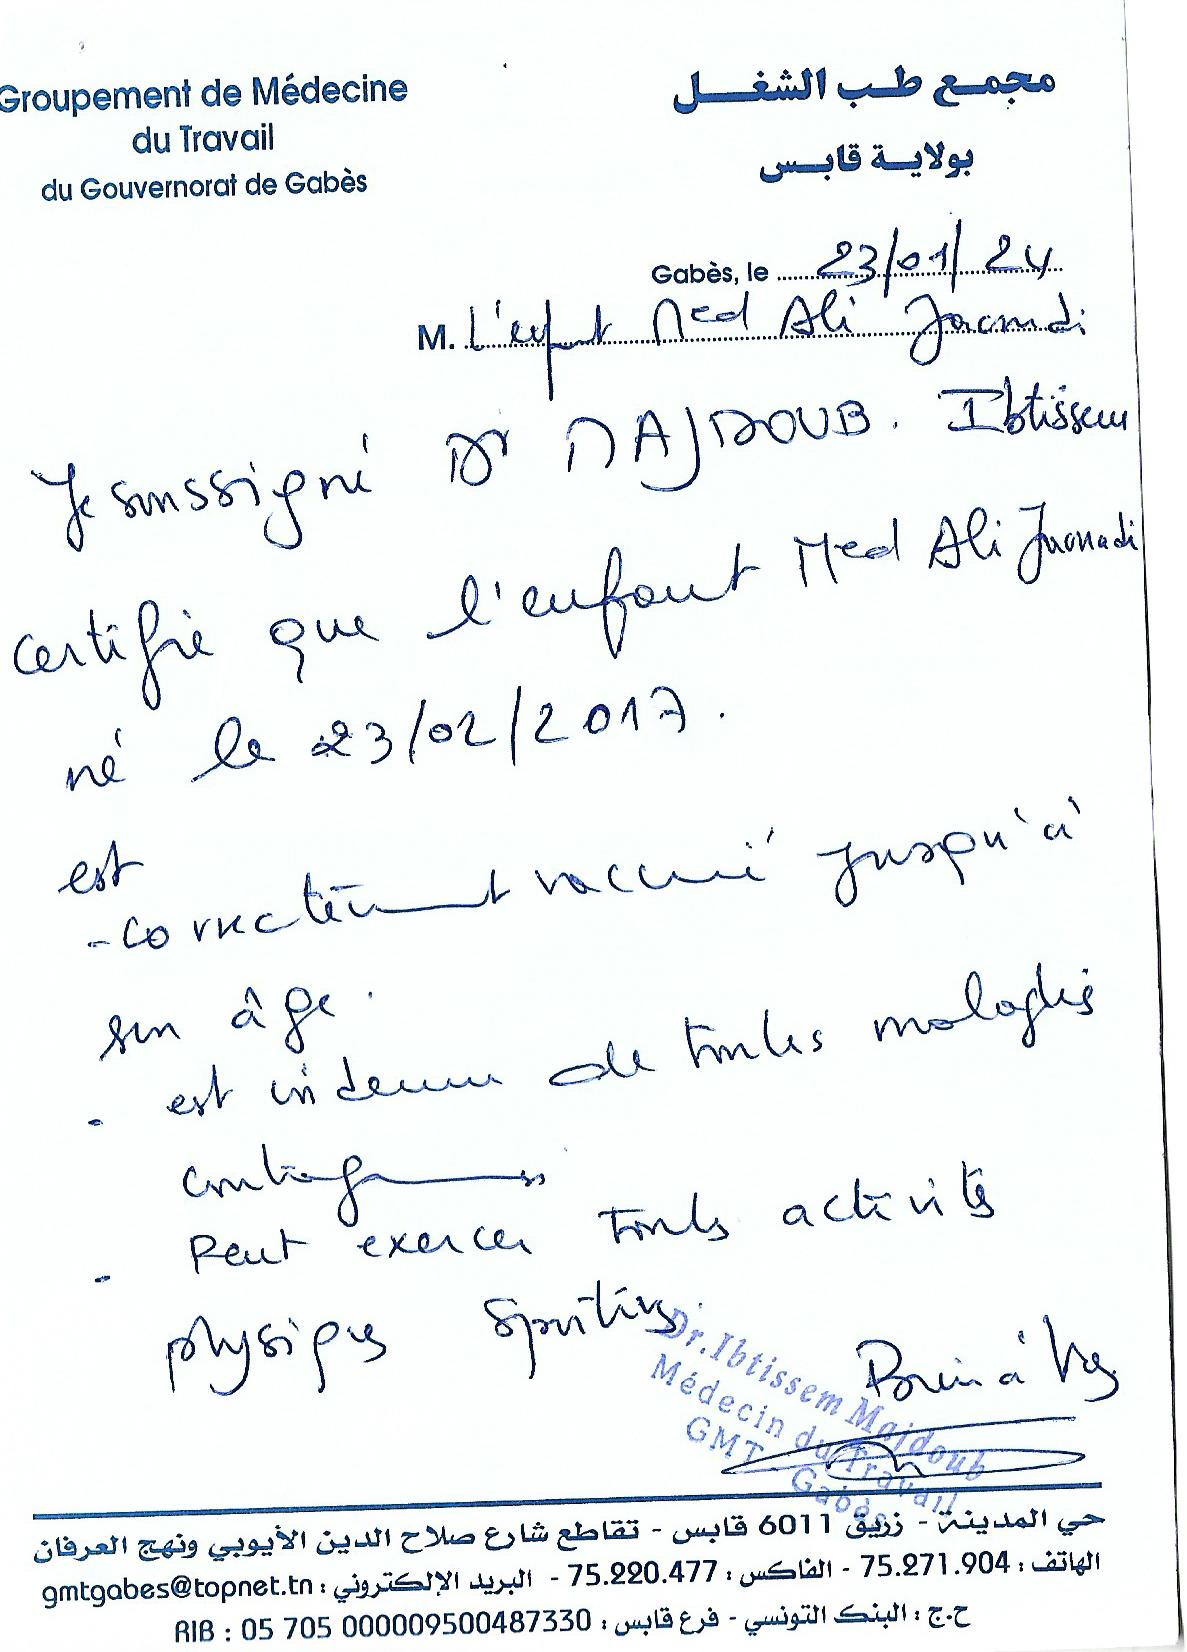 Groupement de Médecine
du Travail
du Gouvernorat de Gabès
مجمع طب الشغل
بولاية قابس
Gabès, le 23/01/24
M. L'enfant Med Ali Jaouadi
Je soussigné Dr MAJDOUB. Ibtissem
certifie que l'enfant Med Ali Jaouadi
né le 23/02/2017.
est
- correctement vacciné jusqu'à
son âge.
- est indemne de toutes maladies
contagieuses
- Peut exercer toutes activités
physiques sportives
Dr. Ibtissem Majdoub
Médecin du Travail
GMT Gabès
حي المدينة - زريق 6011 قابس - تقاطع شارع صلاح الدين الأيوبي ونهج العرفان
الهاتف : 75.271.904 - الفاكس : 75.220.477 - البريد الإلكتروني : gmtgabes@topnet.tn
ح.ج : البنك التونسي - فرع قابس : RIB : 05 705 000009500487330